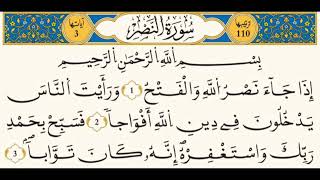 ترتيبها 110 سُورَةُ النَّصْرِ آياتها 3
بِسْمِ اللَّهِ الرَّحْمَٰنِ الرَّحِيمِ
إِذَا جَآءَ نَصْرُ اللَّهِ وَالْفَتْحُ 1 وَرَأَيْتَ النَّاسَ
يَدْخُلُونَ فِے دِينِ اللَّهِ أَفْوَاجاً 2 فَسَبِّحْ بِحَمْدِ
رَبِّكَ وَاسْتَغْفِرْهُ إِنَّهُ كَانَ تَوَّاباً 3